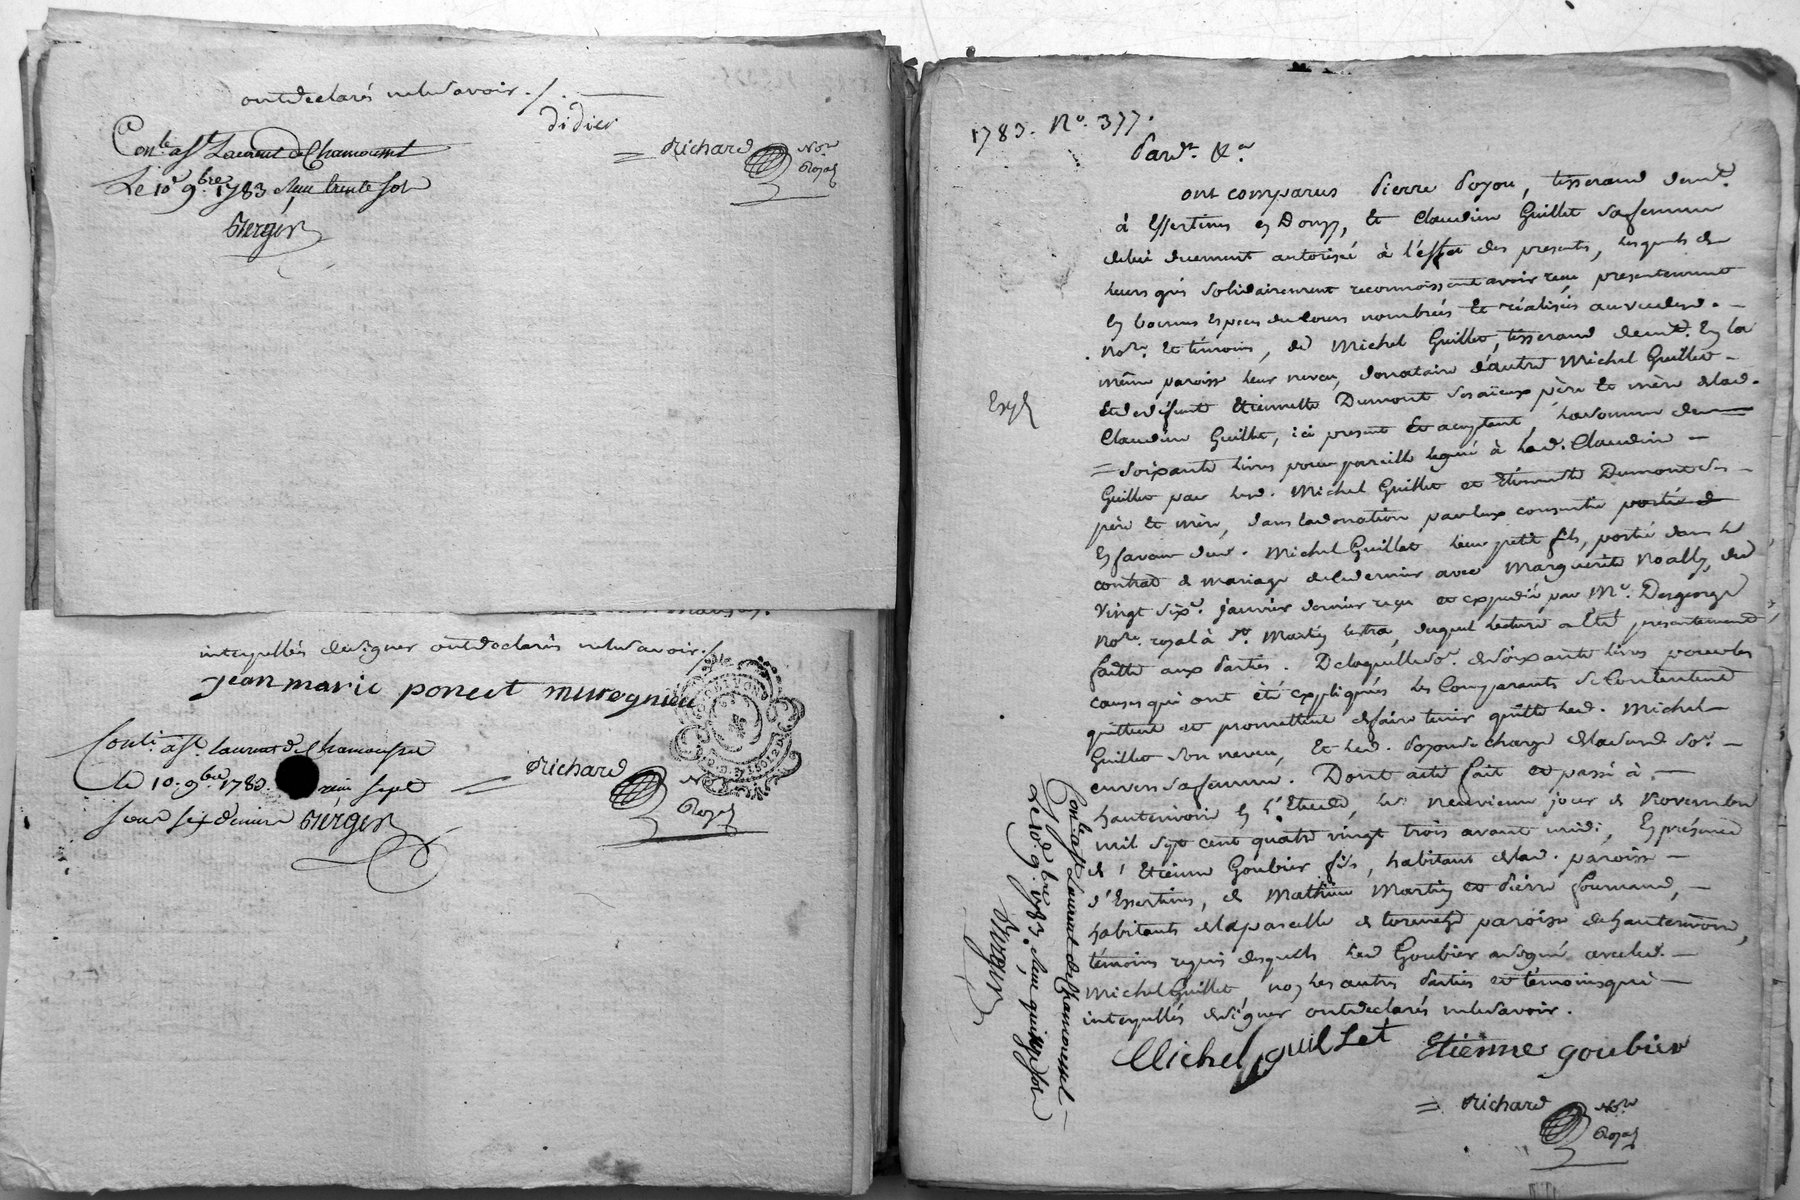 ont declarés ne le savoir ./.
didier
Conlé a St Laurent de Chamousset
Richard No.re
Royal
Le 10 9.bre 1783 Reçu trente sols
Berger
interpellés de signer ont declarés ne le savoir ./
jean marie poncet
Conlé a St laurent de Chamousset
le 10. 9.bre 1783. sept
Richard
Royal
sous six deniers Berger
1783. No. 377.
Pard.t &.a
ont comparus Pierre Poyou, tisserand dem.t
à Essertines en Donzy, Et Claudine Guillet sa femme
de lui duement autorisée à l'effet des presentes, lesquels de
leurs grés solidairement reconnoissent avoir reçu presentement
En bonnes Especes du Cours nombrées Et réalisées au vu dud. -
No.re Et témoins, de Michel Guillet, tisserand dem.t En la
même paroisse leur neveu, donataire d'autre Michel Guillet -
Et de défunte Etiennette Dumont ses aïeux père Et mère de lad.
Exp.é
Claudine Guillet, ici present Et acceptant, la somme de
= soixante livres pour pareille leguée à lad. Claudine -
Guillet par lesd. Michel Guillet et Etiennette Dumont ses -
père Et mère, dans la donation par Eux consentie portée d
En faveur dud. Michel Guillet leur petit fils, portée dans le
contrat de mariage de ce dernier avec Marguerite Noally, du
vingt six.e janvier dernier reçu et expedié par M.e Desgeorge
No.re royal à St. Martin lestra, duquel lecture a Eté presentement
faitte aux Parties. De laquelle so.e de soixante livres pour les
causes qui ont été expliquées les Comparants se Contentent
quittent et promettent de faire tenir quitte led. Michel -
Guillet son neveu, Et led. Poyou se charge de lad. so.e -
envers sa femme. Dont acte fait et passé à, -
hauterivoire En l'Etude, le neuvieme jour de Novembre
mil sept cent quatre vingt trois avant midi, En présence
d'Etienne Goubier fils, habitant de lad. paroisse -
d'Essertines, de Mathieu Martin et Pierre fournand, -
habitants de la parcelle de paroisse de hauterivoire,
témoins requis desquels led Goubier a signé avec led. -
Michel Guillet non les autres Parties et témoins qui -
interpellés de signer ont declarés ne le savoir.
Michel guillet Etienne goubier
Richard No.re
Royal
Conlé a St Laurent de Chamousset
Le 10. 9.bre 1783. Reçu quinze sols
Berger